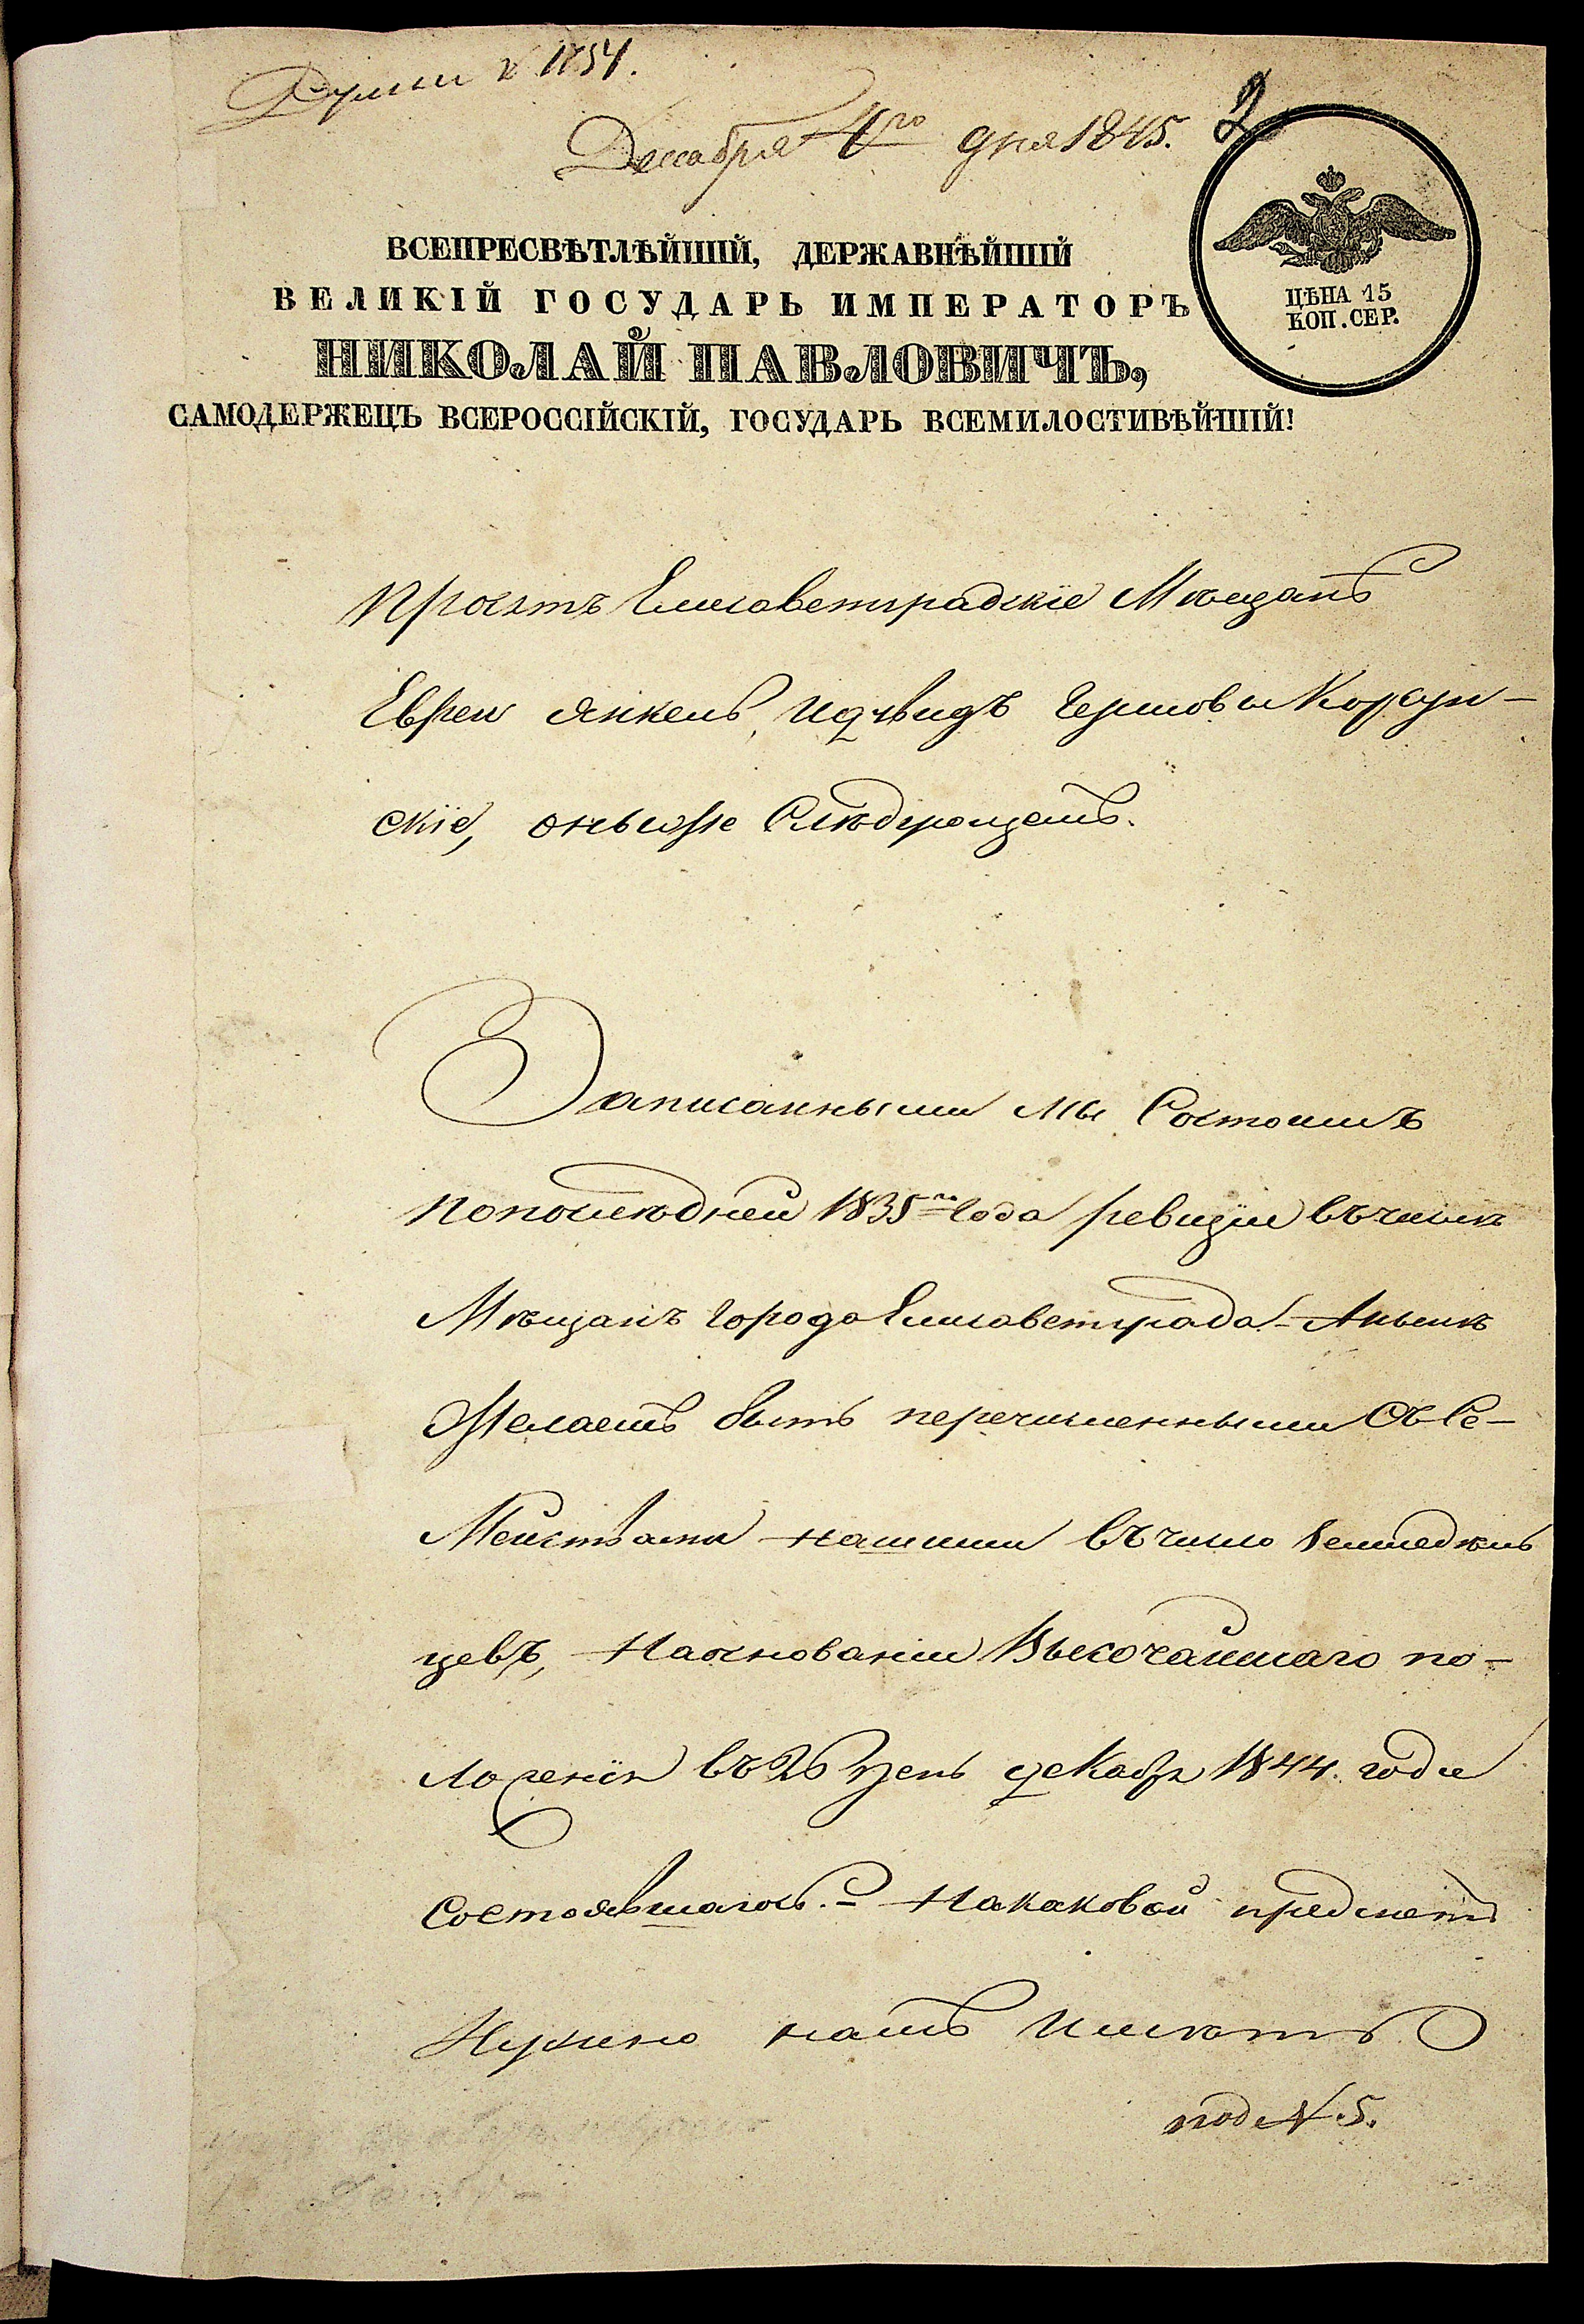 Думы № 1854.
Декабря 4го дня 1845.
2
ВСЕПРЕСВѢТЛѢЙШІЙ, ДЕРЖАВНѢЙШІЙ
ВЕЛИКІЙ ГОСУДАРЬ ИМПЕРАТОРЪ
НИКОЛАЙ ПАВЛОВИЧЪ,
САМОДЕРЖЕЦЪ ВСЕРОССІЙСКІЙ, ГОСУДАРЬ ВСЕМИЛОСТИВѢЙШІЙ!
ЦѢНА 15
КОП. СЕР.
Просятъ Елисаветградскіе Мѣщанѣ
Евреи Янкель, Гершовы Корсун-
скіе, о Слѣдующемъ.
Записанными мы Состоимъ
попослѣдней 1835го Года ревизіи въчислѣ
Мѣщанъ Города Елисаветграда. Анынѣ
Желаемъ быть перечисленными Съ Се-
Мействами нашими въчисло Земледѣль
цевъ, Наоснованіи Высочайшаго по-
ложенія въ 26 день декабр 1844. года
Состоявшагося. Накаковой предметъ
Нужно намъ Имѣть
под № 5.